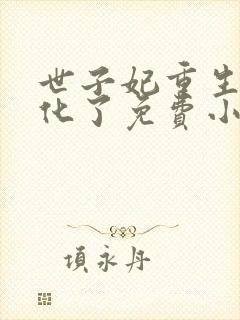 世子妃重生
化了免费小
项永丹